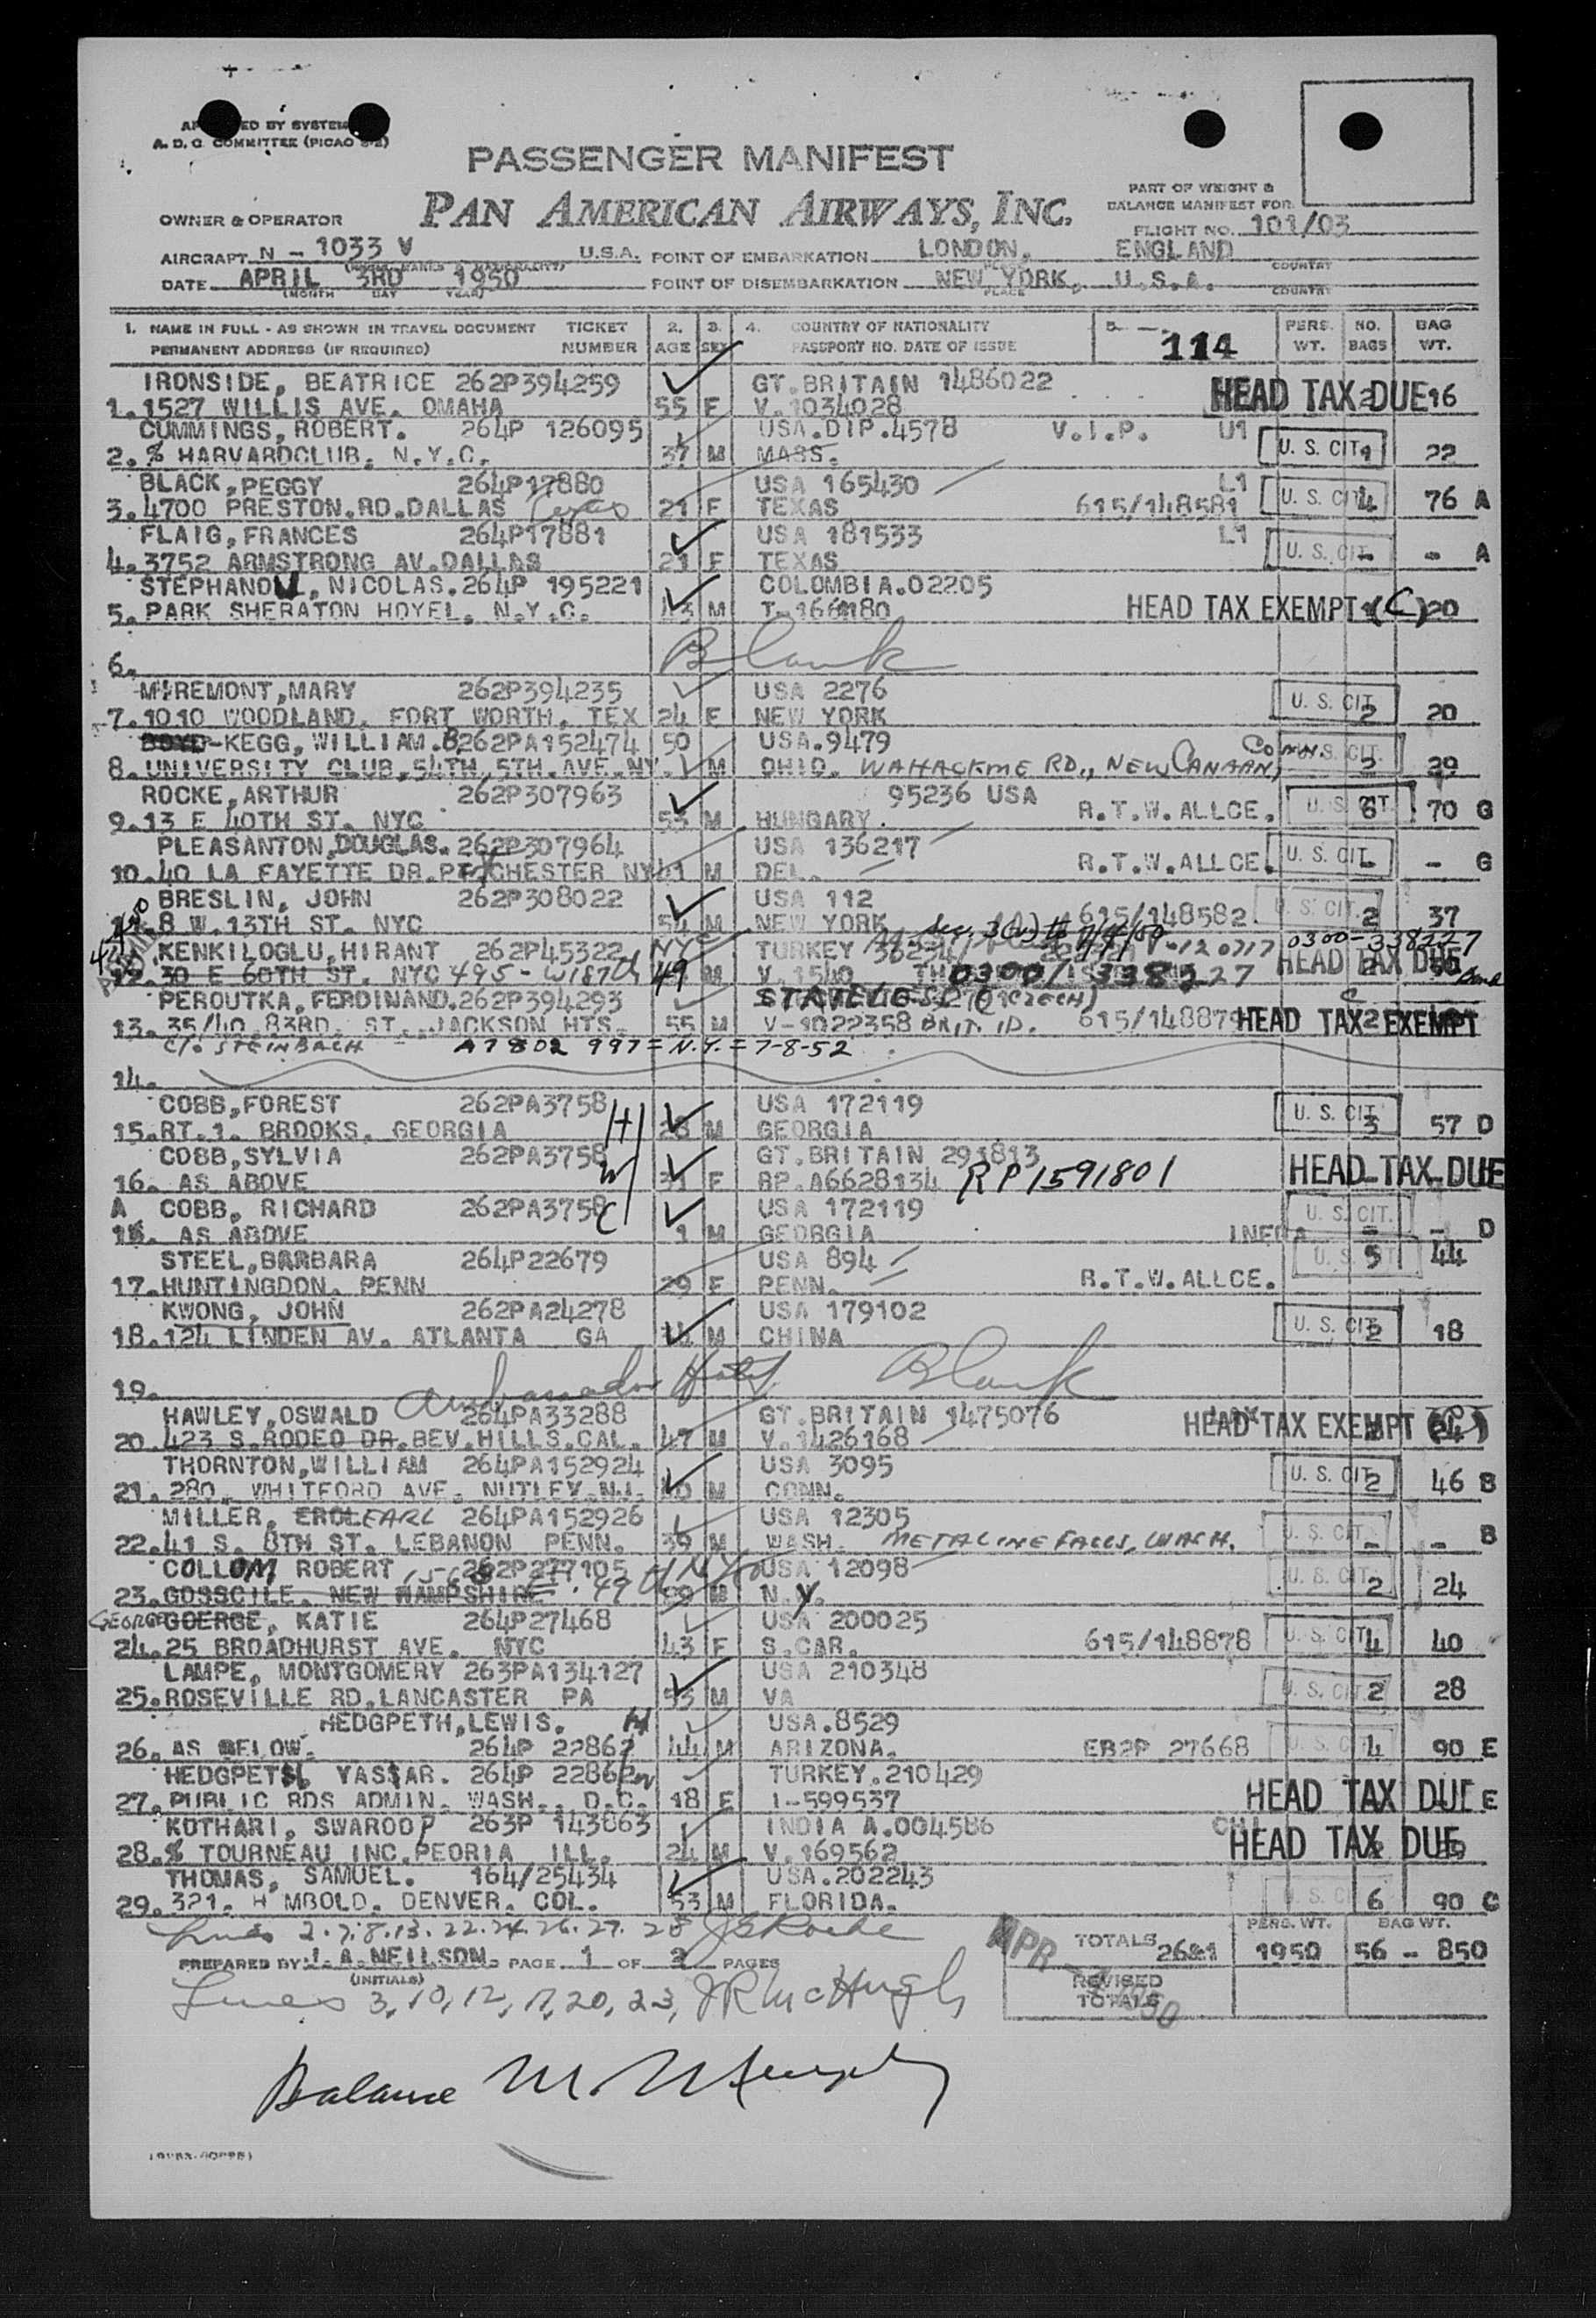 APPROVED BY SYSTEM
A. D. C. COMMITTEE (PICAO
PASSENGER MANIFEST
PAN AMERICAN AIRWAYS, INC.
PART OF WEIGHT &
BALANCE MANIFEST FOR
FLIGHT NO. 101/03
OWNER & OPERATOR
AIRCRAFT N - 1033 V U.S.A. POINT OF EMBARKATION LONDON, ENGLAND
COUNTRY
DATE APRIL 3RD 1950 POINT OF DISEMBARKATION NEW YORK, U.S.A.
(MONTH DAY YEAR) PLACE COUNTRY
1. NAME IN FULL - AS SHOWN IN TRAVEL DOCUMENT TICKET 2. 3. 4. COUNTRY OF NATIONALITY 5. PERS. NO. BAG
PERMANENT ADDRESS (IF REQUIRED) NUMBER AGE SEX PASSPORT NO. DATE OF ISSUE 114 WT. BAGS WT.
IRONSIDE, BEATRICE 262P394259 GT.BRITAIN 1486022
1. 1527 WILLIS AVE. OMAHA 55 F V.1034028 HEAD TAX DUE 2 16
CUMMINGS, ROBERT. 264P 126095 USA.DIP.4578 V.I.P. U1
2. % HARVARDCLUB. N.Y.C. 37 M MASS. U. S. CIT. 1 22
BLACK, PEGGY 264P17880 USA 165430 L1
3. 4700 PRESTON.RD.DALLAS Texas 21 F TEXAS 615/148581 U. S. CIT. 4 76 A
FLAIG, FRANCES 264P17881 USA 181533 L1
4. 3752 ARMSTRONG AV.DALLAS 21 F TEXAS U. S. CIT. - - A
STEPHANOU, NICOLAS. 264P 195221 COLOMBIA.02205
5. PARK SHERATON HOYEL. N.Y.C. 43 M HEAD TAX EXEMPT 1 (C) 20
6. Blank
MIREMONT, MARY 262P394235 USA 2276
7. 1010 WOODLAND. FORT WORTH. TEX 24 F NEW YORK U. S. CIT. 2 20
BOYD-KEGG, WILLIAM.B 262PA152474 50 USA.9479 CONN.
8. UNIVERSITY CLUB, 54TH, 5TH. AVE.NY. M OHIO. WAHACKME RD., NEW CANAAN, U. S. CIT. 29
ROCKE, ARTHUR 262P307963 95236 USA
9. 13 E 40TH ST. NYC 53 M HUNGARY. R.T.W.ALLCE. U. S. CIT. 6 70 G
PLEASANTON, DOUGLAS. 262P307964 USA 136217
10. 40 LA FAYETTE DR. CHESTER NY 41 M DEL. R.T.W.ALLCE. U. S. CIT. - - G
BRESLIN, JOHN 262P308022 USA 112
11. 8 W. 13TH ST. NYC 54 M NEW YORK 615/148582 U. S. CIT. 2 37
KENKILOGLU, HIRANT 262P45322 NYC TURKEY 0300-338227
12. 30 E 60TH ST. NYC 495 - W187th 49 M V.1540 0300/338227 HEAD TAX DUE
PEROUTKA, FERDINAND. 262P394293 STATELESS (CZECH)
13. 35/40.83RD. ST. JACKSON HTS. 55 M V-1022358 BRIT. ID. 615/148879 HEAD TAX 2 EXEMPT
C/o. STEINBACH A7802 997 = N.Y. = 7-8-52
14.
COBB, FOREST 262PA3758 H USA 172119
15. RT.1. BROOKS. GEORGIA 28 M GEORGIA U. S. CIT. 3 57 D
COBB, SYLVIA 262PA3758 W GT.BRITAIN 291813
16. AS ABOVE 31 F RP.A6628134 RP1591801 HEAD TAX DUE
A COBB, RICHARD 262PA3758 C USA 172119
16. AS ABOVE 1 M GEORGIA U. S. CIT. - - D
STEEL, BARBARA 264P22679 USA 894
17. HUNTINGDON. PENN 29 F PENN. R.T.W.ALLCE. U. S. CIT. 5 44
KWONG, JOHN 262PA24278 USA 179102
18. 124 LINDEN AV. ATLANTA GA M CHINA U. S. CIT. 2 18
19. Ambassador Hotel Blank
HAWLEY, OSWALD 264PA33288 GT.BRITAIN 1475076
20. 423 S.RODEO DR.BEV.HILLS.CAL. 47 M V.1426168 HEAD TAX EXEMPT
THORNTON, WILLIAM 264PA152924 USA 3095
21. 280. WHITFORD AVE. NUTLEY.N.J. M CONN. U. S. CIT. 2 46 B
MILLER, EROL EARL 264PA152926 USA 12305
22. 41 S. 8TH ST. LEBANON PENN. 39 M WASH. METALINE FALLS, WASH. U. S. CIT. - - B
COLLOM ROBERT 262P277105 USA 12098
23. GOSSCILE. NEW HAMPSHIRE M N.Y. U. S. CIT. 2 24
GEORGE GOERGE, KATIE 264P27468 USA 200025
24. 25 BROADHURST AVE. NYC 43 F S.CAR. 615/148878 U. S. CIT. 4 40
LAMPE, MONTGOMERY 263PA134127 USA 210348
25. ROSEVILLE RD.LANCASTER PA 53 M VA U. S. CIT. 2 28
HEDGPETH, LEWIS. H USA.8529
26. AS BELOW. 264P 22862 44 M ARIZONA. EB2P 27668 U. S. CIT. 4 90 E
HEDGPETH YASSAR. 264P 22862 W TURKEY.210429
27. PUBLIC RDS ADMIN. WASH., D.C. 18 F I-599537 HEAD TAX DUE E
KOTHARI, SWAROOP 263P 143863 INDIA A.004586
28. % TOURNEAU INC.PEORIA ILL. 24 M V.169562 HEAD TAX DUE
THOMAS, SAMUEL. 164/25434 USA.202243
29. 321. H MBOLD. DENVER. COL. 53 M FLORIDA. U. S. CIT. 6 90 C
Lines 2.7.8.13.22.24.26.27.28
PERS. WT. BAG WT.
PREPARED BY: J.A.NEILSON. PAGE 1 OF 2 PAGES TOTALS 1950 56 - 850
(INITIALS)
REVISED
TOTALS
APR - 4 1950
Lines 3, 10, 12, 17, 20, 23, JR McHugh
Balance M.